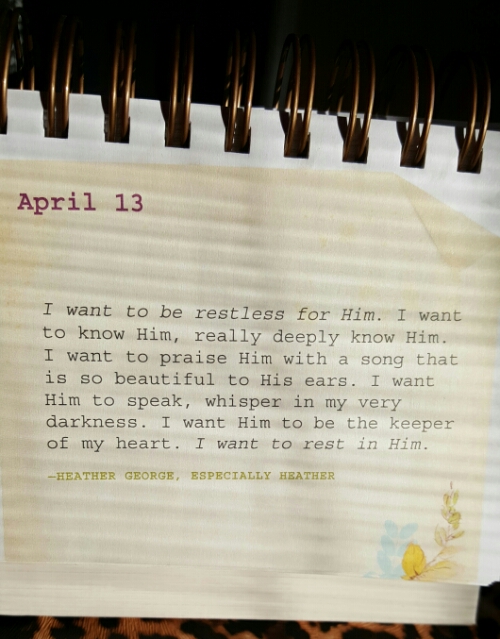 April 13
I want to be restless for Him. I want
to know Him, really deeply know Him.
I want to praise Him with a song that
is so beautiful to His ears. I want
Him to speak, whisper in my very
darkness. I want Him to be the keeper
of my heart. I want to rest in Him.
—HEATHER GEORGE, ESPECIALLY HEATHER